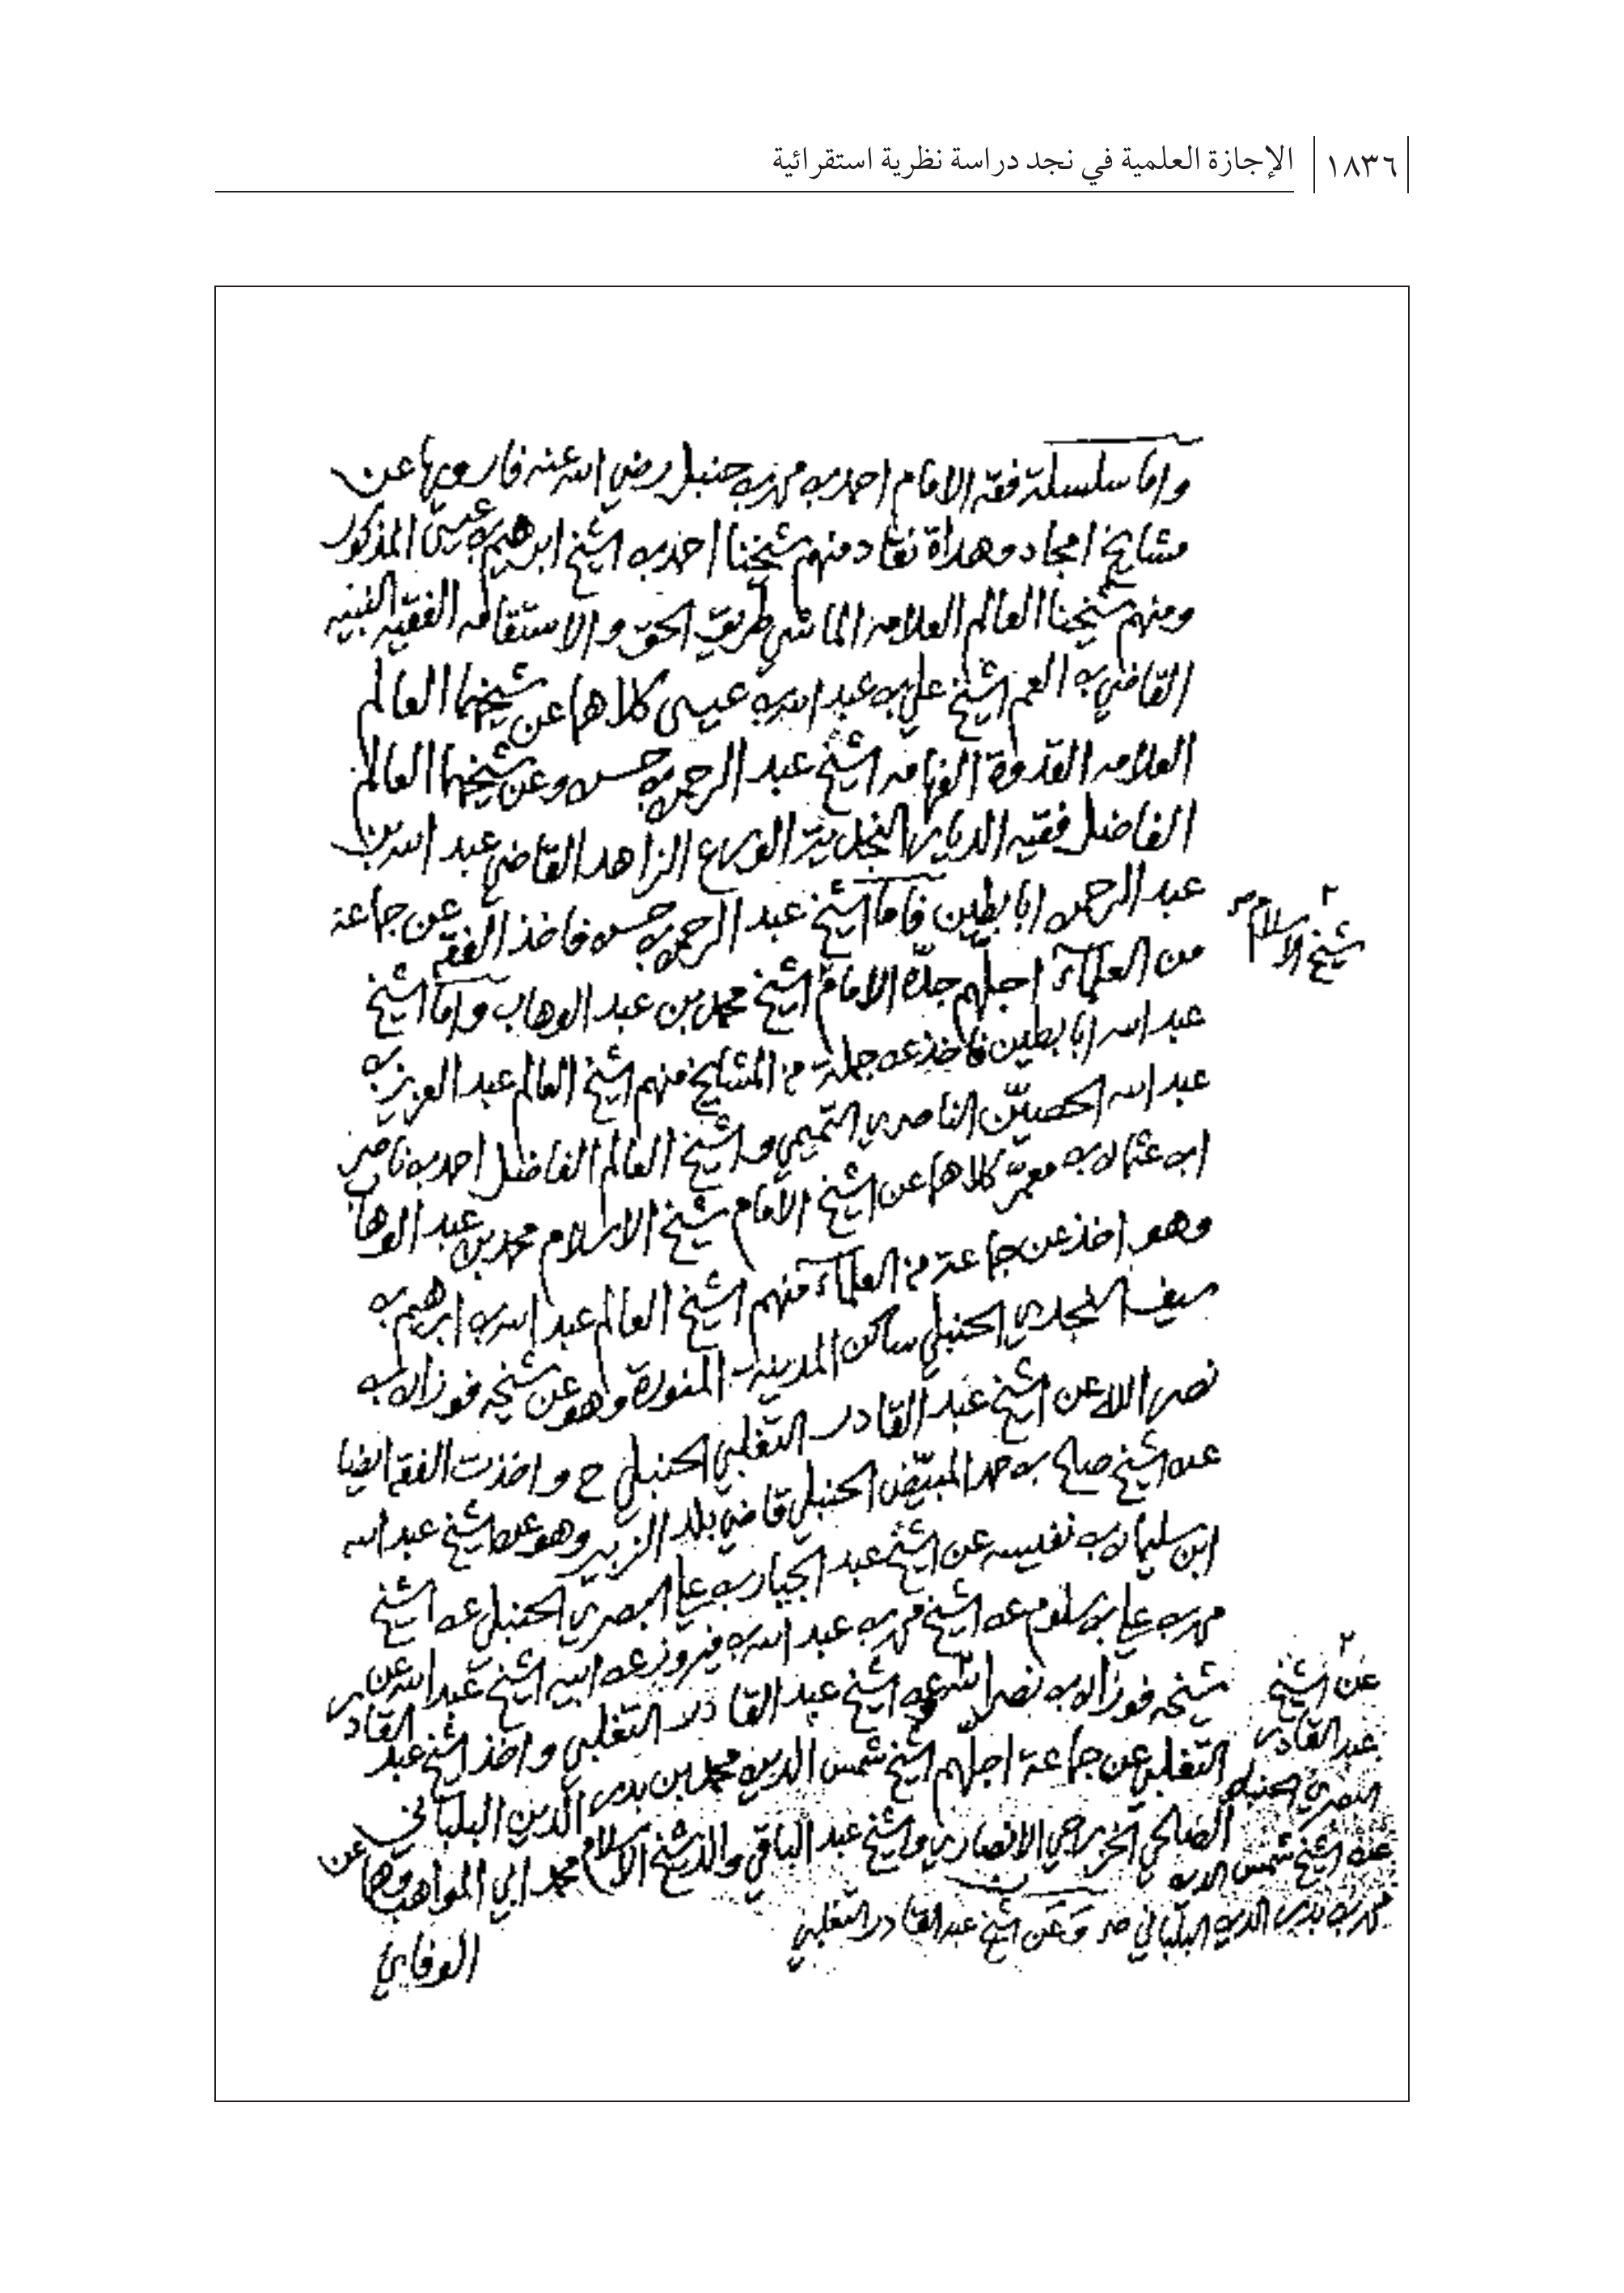 ١٨٣٦ الإجازة العلمية في نجد دراسة نظرية استقرائية
واما سلسلة فقه الامام احمد بن محمد بن حنبل رضي الله عنه فارويها عن
مشايخ امجاد وهداة نقاد منهم شيخنا احمد بن الشيخ ابرهيم بن عيسى المذكور
ومنهم شيخنا العالم العلامه الماشي طريق الحق والاستقامه الفقيه النبيه
القاضي بن العم الشيخ علي بن عبد الله بن عيسى كلاهما عن شيخهما العالم
العلامه القدوة الفهامه الشيخ عبد الرحمن بن حسن وعن شيخهما العالم
الفاضل فقيه الديار النجدية الورع الزاهد القاضي عبد الله بن
عبد الرحمن ابا بطين فاما الشيخ عبد الرحمن بن حسن فاخذ الفقه عن جماعة
من العلمآء اجلهم جدّه الامام الشيخ محمد بن عبد الوهاب واما الشيخ
شيخ الاسلام صح
عبد الله ابا بطين فاخذ عن جملة من المشايخ منهم الشيخ العالم عبد العزيز بن
عبد الله الحصيّن الناصري التميمي والشيخ العالم الفاضل احمد بن ناصر
ابن عثمان بن معمّر كلاهما عن الشيخ الامام شيخ الاسلام محمد بن عبد الوهاب
وهو اخذ عن جماعة من العلمآء منهم الشيخ العالم عبد الله بن ابرهيم بن
سيف النجدي الحنبلي ساكن المدينة المنورة وهو عن شيخه فوزان بن
نصر الله عن الشيخ عبد القادر التغلبي الحنبلي ح واخذت الفقه ايضا
عن الشيخ صالح بن حمد المبيّض الحنبلي قاضي بلد الزبير وهو عن الشيخ عبد الله
ابن سليمان بن نفيسه عن الشيخ عبد الجبار بن علي البصري الحنبلي عن الشيخ
محمد بن علي بن سلوم عن الشيخ محمد بن عبد الله بن فيروز عن ابيه الشيخ عبد الله عن
شيخه فوزان بن نصر الله عن الشيخ عبد القادر التغلبي واخذ الشيخ عبد القادر
التغلبي عن جماعة اجلهم الشيخ شمس الدين محمد بن بدر الدين البلباني
الصالحي الخزرجي الانصاري والشيخ عبد الباقي والد شيخ الاسلام محمد ابي المواهب وهما عن
عن الشيخ
عبد القادر
البصري الحنبلي
عن الشيخ شمس الدين
محمد بن بدر الدين البلباني صح وعن الشيخ عبد القادر التغلبي
الوفايئ